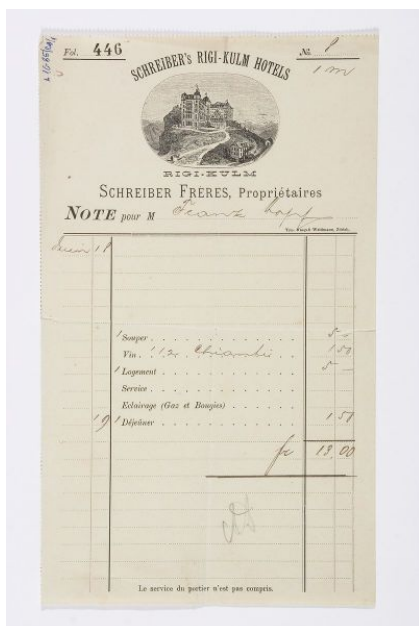 Fol. 446
№ 8
1 m
SCHREIBER'S RIGI-KULM HOTELS
RIGI-KULM
SCHREIBER FRÈRES, Propriétaires
NOTE pour M Franz
18
1 Souper 5 —
Vin 1/2 Chianti 1 50
1 Logement 5 —
Service
Eclairage (Gaz et Bougies)
19 1 Déjeûner 1 50
fr 13,00
Le service du portier n'est pas compris.